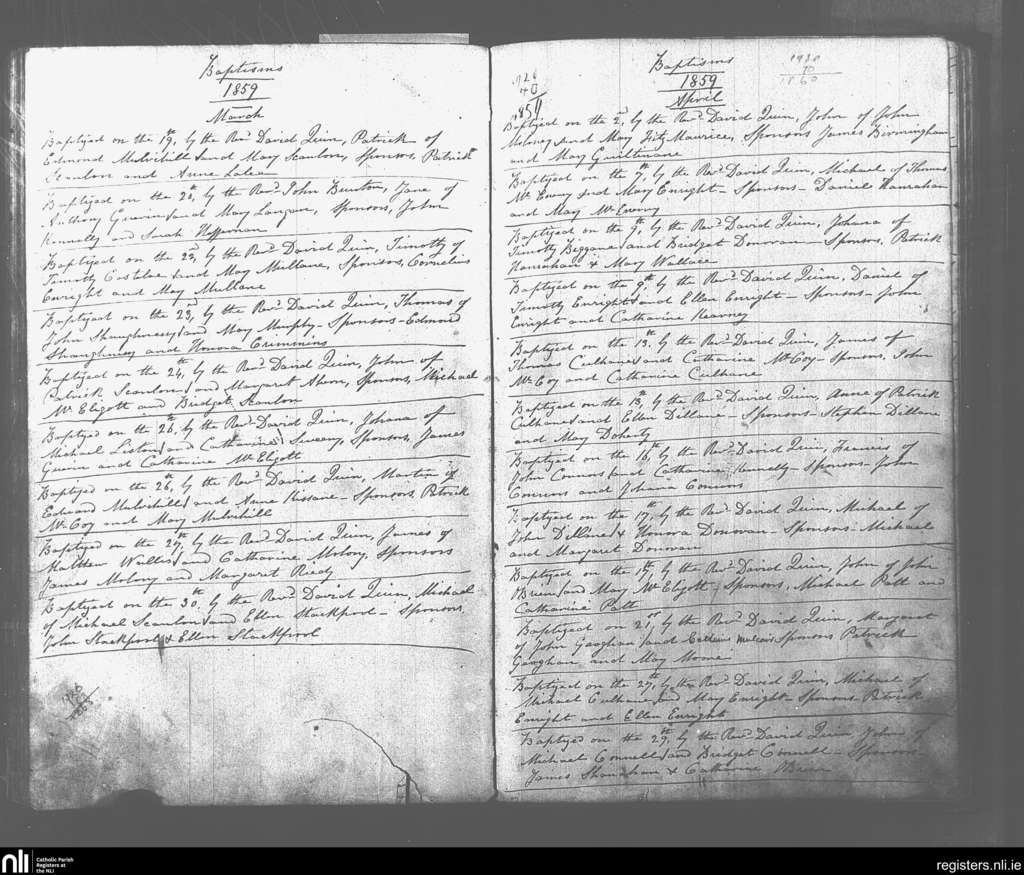 Baptisms
1859
March
Baptized on the 19th, by the Revd David Quin, Patrick of
Edmond Mulvihill and Mary Scanlon, Sponsors, Patrick
Scanlon and Anne
Baptized on the 20th, by the Revd John Burton, Jane of
Anthony and Mary Sponsors, John
Kennelly and Sarah Heffernan
Baptized on the 22nd, by the Revd David Quin, Timothy of
Timothy Costeloe and May Mullane, Sponsors, Cornelius
Enright and May Mullane
Baptized on the 23rd, by the Revd David Quin, Thomas of
John Shaughnessy and May Murphy - Sponsors - Edmond
Shaughnessy and Honora Crimmins
Baptized on the 24th, by the Revd David Quin, John of
Patrick Scanlon and Margaret Sponsors, Michael
Mc Eligott and Bridget Scanlon
Baptized on the 26th, by the Revd David Quin, Johana of
Michael Liston and Catharine Sweeny, Sponsors, James
Guerin and Catharine Mc Eligott
Baptized on the 26th, by the Revd David Quin, Martin of
Edward Mulvihill and Anne Kissane - Sponsors, Patrick
Mc Coy and Mary Mulvihill
Baptized on the 27th, by the Revd David Quin, James of
Matthew Wallis and Catharine Molony, Sponsors
James Molony and Margaret Reidy
Baptized on the 30th, by the Revd David Quin, Michael
of Michael Scanlon and Ellen Stackpool - Sponsors
John Stackpool & Ellen Stackpool
Baptisms
1859
April
Baptized on the 2nd, by the Revd David Quin, John of John
Moloney and Mary Fitz Maurice, Sponsors James Birmingham
and May Guiltinane
Baptized on the 7th, by the Revd David Quin, Michael of Thomas
Mc Eniry and Mary Enright - Sponsors - Daniel Hanrahan
and May Mc Eniry
Baptized on the 9th, by the Revd David Quin, Johana of
Timothy Beggane and Bridget Donovan - Sponsors, Patrick
Hanrahan & Mary Wallace
Baptized on the 9th, by the Revd David Quin, Daniel of
Timothy Enright and Ellen Enright - Sponsors - John
Enright and Catharine Kearney
Baptized on the 13th, by the Revd David Quin, James of
Thomas Culhane and Catharine Mc Coy - Sponsors, John
Mc Coy and Catharine Culhane
Baptized on the 13th, by the Revd David Quin, Anne of Patrick
Culhane and Ellen Dillane - Sponsors - Stephen Dillane
and May Doherty
Baptized on the 16th, by the Revd David Quin, Francis of
John Connors and Catharine Kennelly - Sponsors - John
Connors and Johana Connors
Baptized on the 17th, by the Revd David Quin, Michael of
John Dillane & Honora Donovan - Sponsors - Michael
and Margaret Donovan
Baptized on the by the Revd David Quin, John of John
OBrien and May Mc Elgott - Sponsors, Michael Patt and
Catharine Patt
Baptized on 21st, by the Revd David Quin, Margaret
of John Gaoghan and Sponsors Patrick
Gaoghan and May Moone
Baptized on the 27th, by the Revd David Quin, Michael of
Michael Culhane and May Enright - Sponsors Patrick
Enright and Ellen Enright
Baptized on the 29th, by the Revd David Quin, John of
Michael Connell and Bridget Connell - Sponsors
James Shanahan & Catharine OBrien
nli
Catholic Parish
Registers at
the NLI
registers.nli.ie